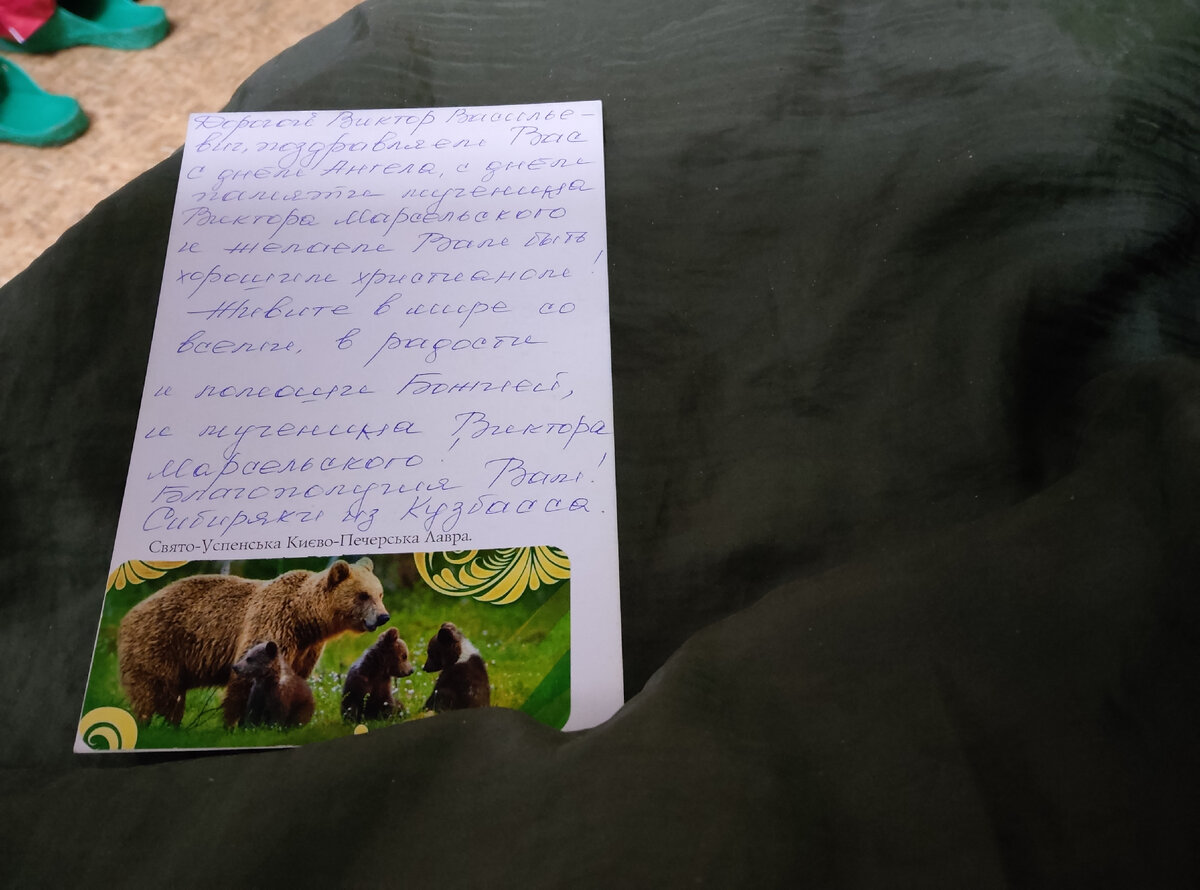 Дорогой Виктор Василье-
вич, поздравляем Вас
с днём Ангела, с днём
памяти мученика
Виктора Марсельского
и желаем Вам быть
хорошим христианом!
Живите в мире со
всеми, в радости
и помощи Божией,
и мученика Виктора
Марсельского.
Благополучия Вам!
Сибиряки из Кузбасса.
Свято-Успенська Києво-Печерська Лавра.